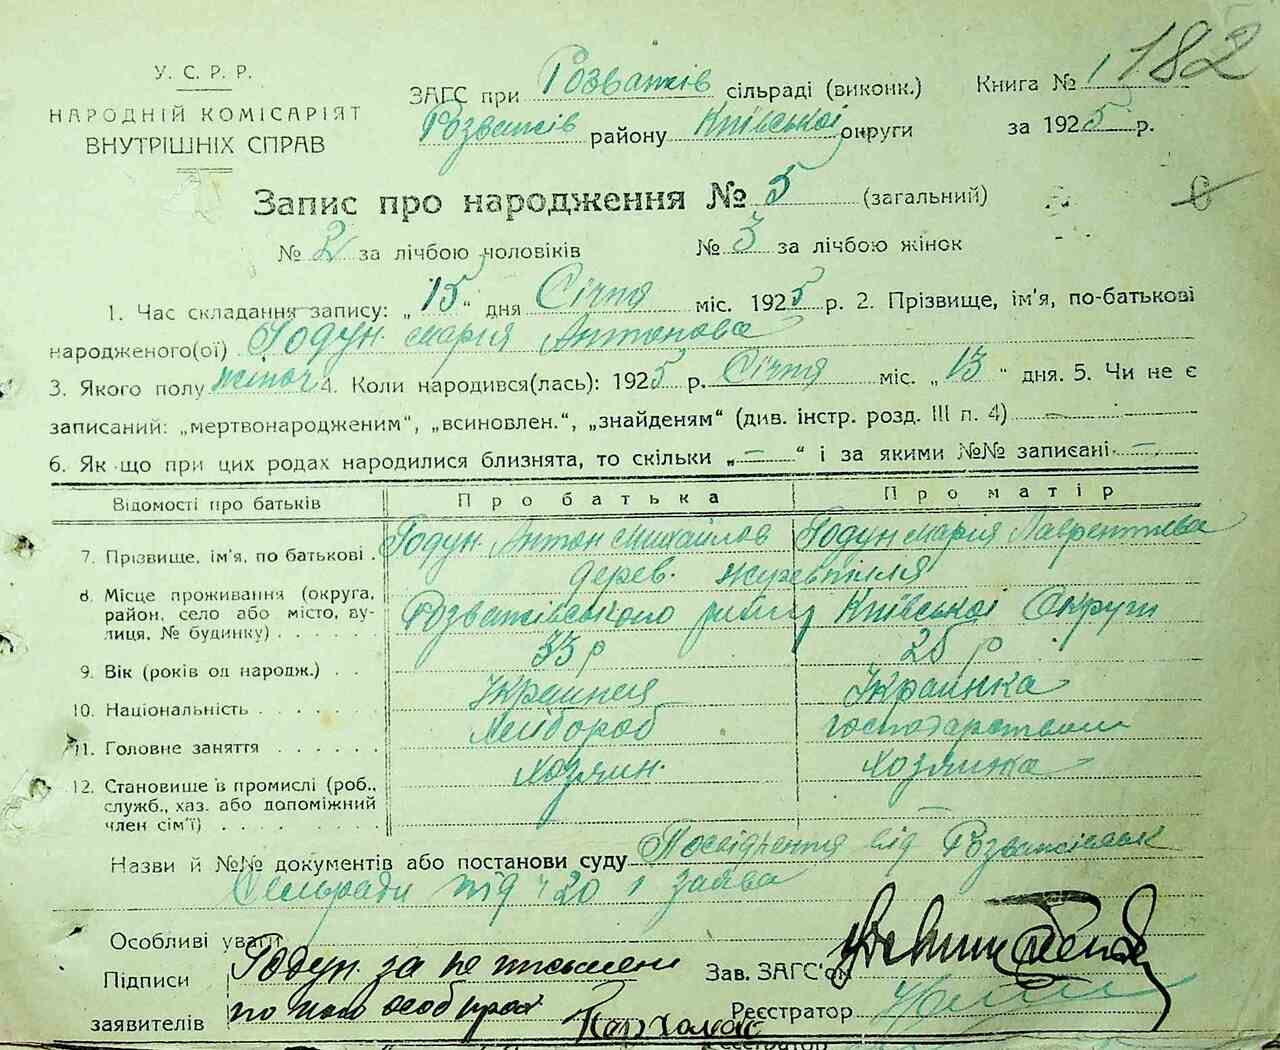 182
У. С. Р. Р.
НАРОДНІЙ КОМІСАРІЯТ
ВНУТРІШНІХ СПРАВ
ЗАГС при Розважів сільраді (виконк.)
Розважів району Київської округи
Книга № 1
за 1925 р.
Запис про народження № 5 (загальний)
№ 2 за лічбою чоловіків № 3 за лічбою жінок
1. Час складання запису: „15“ дня Січня міс. 1925 р. 2. Прізвище, ім'я, по-батькові
народженого(ої) Годун Мария Антонова
3. Якого полу жіноч 4. Коли народився(лась): 1925 р. Січня міс. „13“ дня. 5. Чи не є
записаний: „мертвонародженим“, „всиновлен.“, „знайденям“ (див. інстр. розд. III п. 4) —
6. Як що при цих родах народилися близнята, то скільки „—“ і за якими №№ записані —
Відомості про батьків Про батька Про матір
7. Прізвище, ім'я, по батькові . Годун Антон Михайлов Годун Мария Лаврентиева
дерев.
8. Місце проживання (округа,
район, село або місто, ву-
лиця, № будинку) . . . . . Розважівського району Київської Округи
9. Вік (років од народж.) . . 33 р 25 р
10. Національність . . . . . . . Украинка
11. Головне заняття . . . . . . Хлібороб
12. Становище в промислі (роб.,
служб., хаз. або допоміжний
член сім'ї) . . . . . . . . . Хозяин Хозяинка
Назви й №№ документів або постанови суду Посвідчення від
Сельради під ч 20 і заява
Особливі уваги
Підписи
заявителів
Годун за не письмени
по його особ прос
Пархоменко
Зав. ЗАГС'ом
Реєстратор